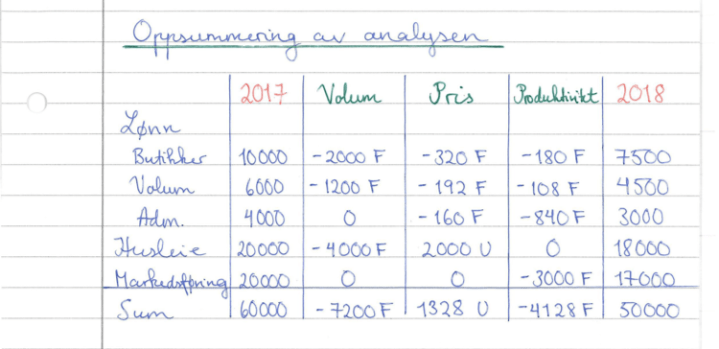 Oppsummering av analysen
2017 Volum Pris Produktivitet 2018
Lønn
Butikker 10000 -2000 F -320 F -180 F 7500
Volum 6000 -1200 F -192 F -108 F 4500
Adm. 4000 0 -160 F -840 F 3000
Husleie 20000 -4000 F 2000 U 0 18000
Markedsføring 20000 0 0 -3000 F 17000
Sum 60000 -7200 F 1328 U -4128 F 50000